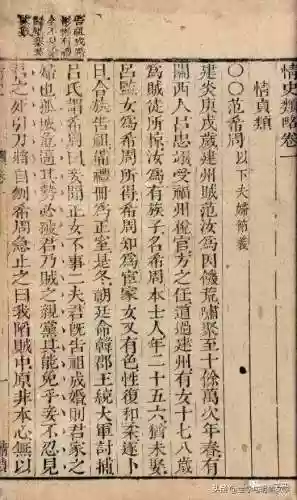 情史類略卷一
情貞類
○○范希周以下夫婦節義
建炎庚戌歲建州賊范汝為因饑荒嘯聚至十餘萬次年春有
關西人呂忠翊受福州稅官方之任道過建州有女十七八歲
為賊徒所掠汝為有族子名希周本士人年二十五六猶未娶
呂監女為希周所得希周知為宦家女又有色性復和柔遂卜
日合族告祖備禮冊為正室是冬朝廷命韓郡王統大軍討捕
呂氏謂希周曰妾聞正女不事二夫君既告祖成婚則君家之
婦也孤城危逼其勢必破君乃賊之親黨其能免乎妾不忍見
君之死引刀將自刎希周急止之曰我陷賊中原非本心無以